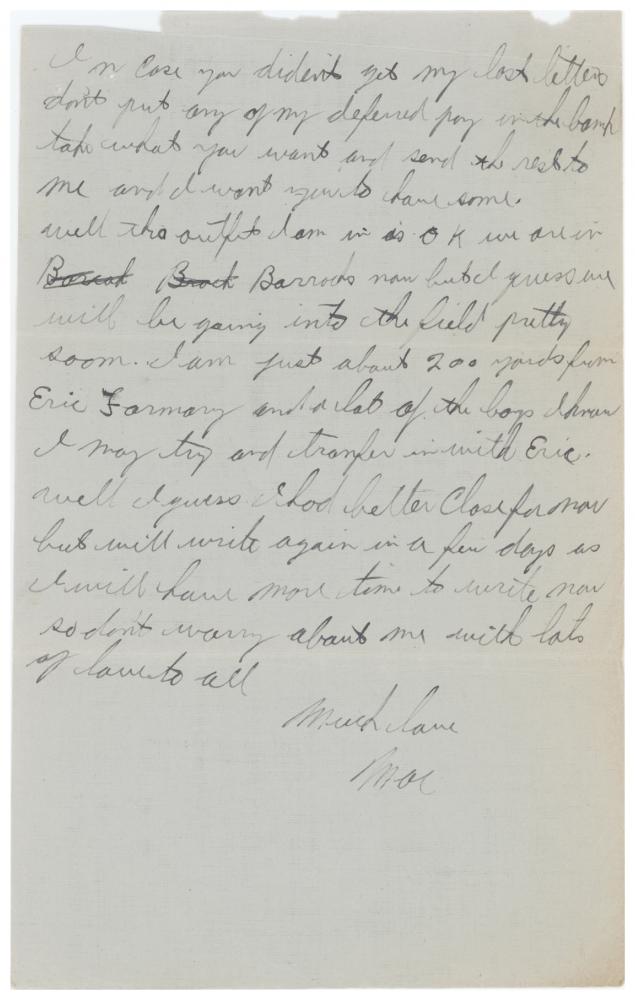 In case you dident get my last letters
dont put any of my deferred pay in the bank
take what you want and send the rest to
me and I want you to have some.
well this outfit I am in is OK we are in
Barrack Brack Barracks now but I guess we
will be going into the field pretty
soom. I am just about 200 yards from
Eric Farmary and a lot of the boys I know
I may try and tranfer in with Eric.
well I guess I had better Close for now
but will write again in a few days as
I will have more time to write now
so don't worry about me with lots
of love to all
Much love
Mac